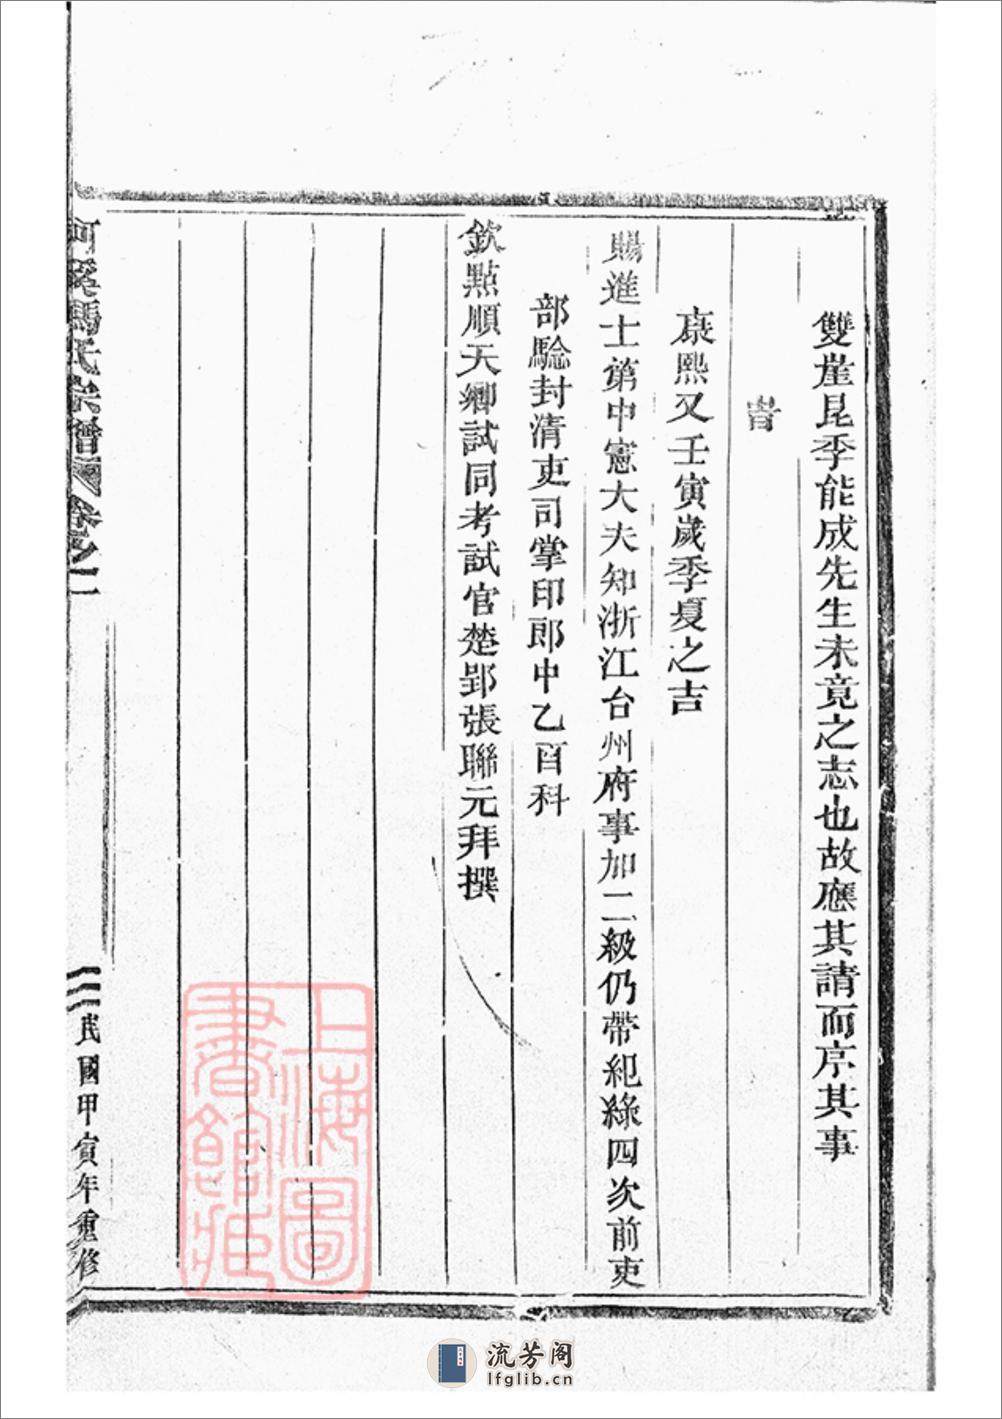 雙崖昆季能成先生未竟之志也故應其請而序其事
旹
康熙又壬寅歲季夏之吉
賜進士第中憲大夫知浙江台州府事加二級仍帶紀綠四次前吏
部騐封清吏司掌印郎中乙酉科
欽點順天鄉試同考試官楚郢張聯元拜撰
河溪馮氏宗譜 卷之一
二 民國甲寅年重修
上海圖書館藏
流芳阁
lfglib.cn